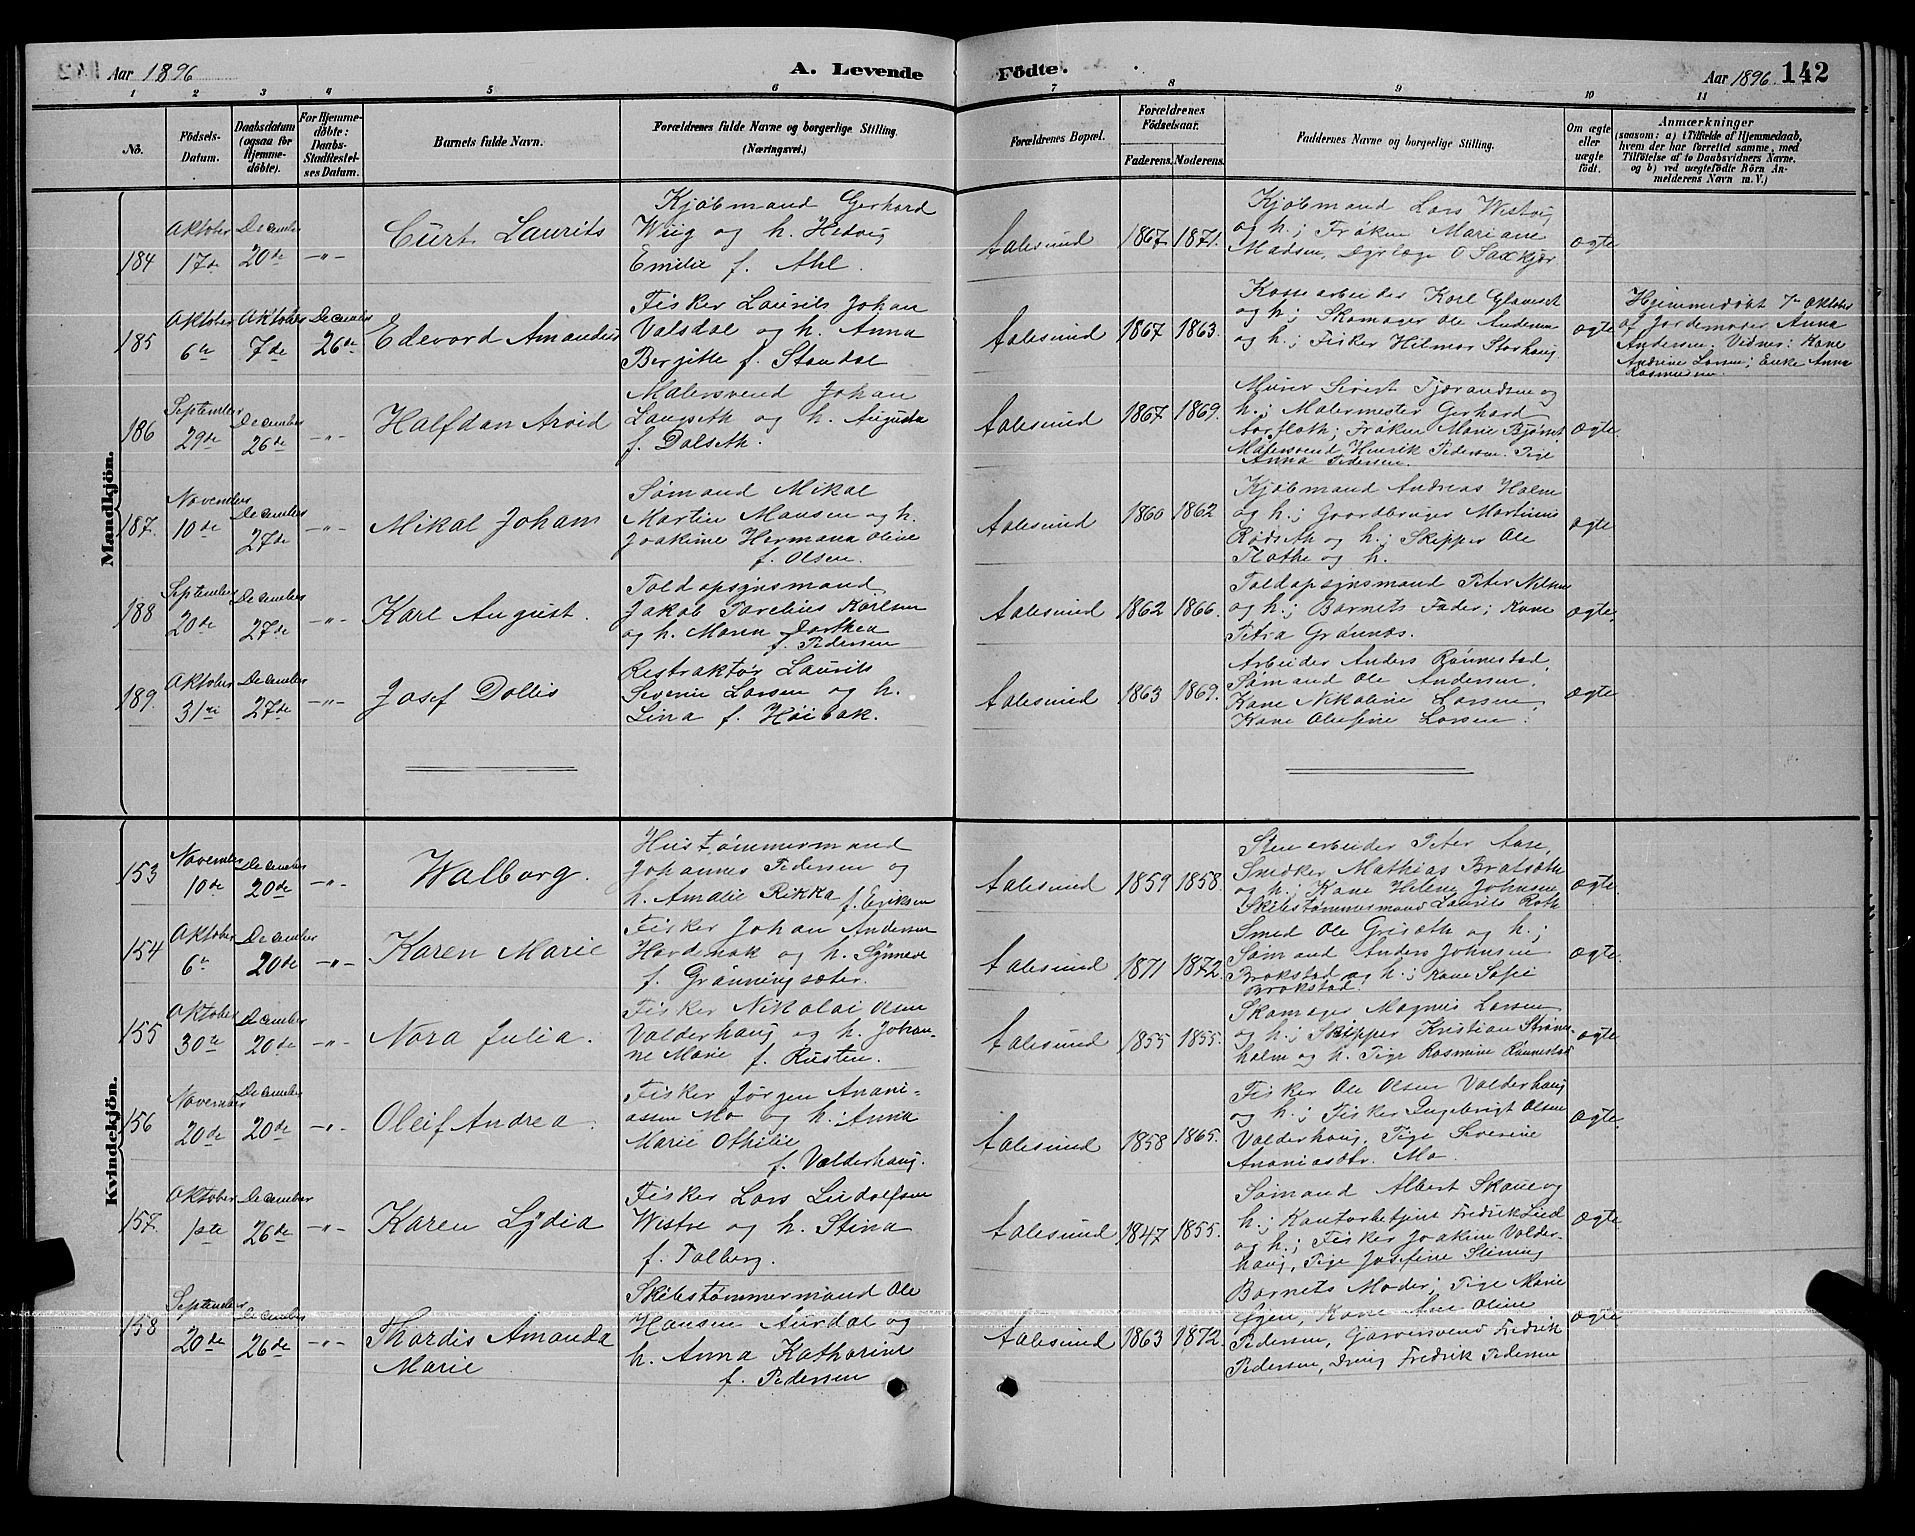 Aar 1896
A. Levende
Födte.
Aar 1896.
142
1 2 3 4 5 6 7 8 9 10 11
No.
Födsels-
Datum.
Daabsdatum
(ogsaa for
Hjemme-
døbte).
For Hjemme-
døbte:
Daabs-
Stadfæstel-
ses Datum.
Barnets fulde Navn.
Forældrenes fulde Navne og borgerlige Stilling.
(Næringsvei.)
Forældrenes Bopæl.
Forældrenes
Födselsaar.
Faderens.
Moderens.
Faddernes Navne og borgerlige Stilling.
Om ægte
eller
uægte
født.
Anmærkninger
(saasom: a) i Tilfælde af Hjemmedaab,
hvem der har forrettet samme, med
Tilføielse af to Daabsvidners Navne.
og b) ved uægtefødte Börn An-
melderens Navn m. V.)
Mandkjön.
184
Oktober
17de
December
20de
-"-
Curt Laurits
Kjøbmand Gerhard
Wiig og h. Hedvig
Emilie f. Ahl.
Aalesund
1867
1871.
Kjøbmand Lars Westvig
og h; Frøken Mariane
Madsen, Dyrlæge O Saxkjær
ægte
185
Oktober
6te
Oktober
7de
December
26de
Edevard Amandus
Fisker Laurits Johan
Valsdal og h. Anna
Bergitte f. Standal
Aalesund
1867
1863.
Karl
og h; Skomager Ole Andersen
og h; Fisker Hilmar Storhaug
ægte
Hjemmedøbt 7de Oktober
af Jordemoder Anna
Andersen. Vidner: Kone
Andrine Larsen; Enke Anna
Rasmussen
186
September
29de
December
26de
-"-
Halfdan Arvid
Malersvend Johan
Langseth og h. Augusta
f. Dalseth.
Aalesund
1867
1869.
Murer Sivert Tjerandsen og
h.; Malermester Gerhard
Aarfloth; Frøken Marie
Malersvend Henrik Pedersen. Pige
Anna Pedersen.
ægte.
187.
November
10de
December
27de
-"-
Mikal Johan
Sømand Mikal
Martin Hansen og h.
Joakime Hermana Oline
f. Olsen.
Aalesund
1860
1862
Kjøbmand Andreas Holm
og h.; Gaardbruger Martinus
Rødseth og h.; Skipper Ole
Flathe og h.
ægte
188
September
20de
December
27de
-"-
Karl August.
Toldopsynsmand
Jakob Karlsen
og h. Maren Dorthea
f. Pedersen
Aalesund
1862
1866.
Toldopsynsmand Peter Nilsen
og h.; Barnets Fader; Kone
Petra Grønnæs.
ægte.
189.
Oktober
31te
December
27de
-"-
Josef Dollis
Restraktør Laurits
Severin Larsen og h.
Lina f. Høibak.
Aalesund
1863
1869.
Arbeider Anders Rønnestad,
Sømand Ole Andersen,
Kone Nikoline Larsen,
Kone Olufine Larsen.
ægte
Kvindekjön.
153
November
10de
December
20de
-"-
Walborg.
Hustømmermand
Johannes Pedersen og
h. Amalie Rikka f. Eriksen
Aalesund
1859
1858.
Stenarbeider Peter Aase,
Snedker Mathias Bratseth
og h.; Kone Helene Johnsen,
Skibstømmermand Laurits Roth
ægte.
154
Oktober
6te
December
20de
-"-
Karen Marie
Fisker Johan Andersen
og h. Synneve
f. Grønningsæter.
Aalesund
1871
1872.
Smed Ole Griseth og h.;
Sømand Anders Johnsen
Brokstad og h.; Kone Sofie
Brokstad.
ægte.
155
Oktober
30te
December
20de
-"-
Nora Julia.
Fisker Nikolai Olsen
Valderhaug og h. Johan-
ne Marie f. Rusten.
Aalesund
1855
1855.
Skomager Magnus Larsen
og h.; Skipper Kristian Strøm-
holm og h. Pige Rasmine Rønnestad
ægte
156
November
20de
December
20de
-"-
Oleif Andrea.
Fisker Jørgen Anani-
assen Mo og h. Anna
Marie Othilie
f. Valderhaug.
Aalesund
1858
1865.
Fisker Ole Olsen Valderhaug
og h.; Fisker Ingebrigt Olsen
Valderhaug, Pige Severine
Ananiasdtr. Mo.
ægte.
157.
Oktober
1ste
December
26de
-"-
Karen Lydia
Fisker Lars Ludolfsen
Westre og h. Stina
f. Talberg.
Aalesund
1847
1855.
Sømand Albert Skare og
h.; Kontorbetjent Fredrik Lied
og h.; Fisker Joakim Valder-
haug, Pige Josefine Slinning
ægte
158
September
20de
December
26de
-"-
Thordis Amanda
Marie
Skibstømmermand Ole
Hansen Aurdal og
h. Anna Katharine
f. Pedersen
Aalesund
1863
1872.
Barnets Moder; Pige Marie
Øgen, Kone Ane Oline
Pedersen, Garversvend Fredrik
Pedersen, Dreng Fredrik Pedersen
ægte